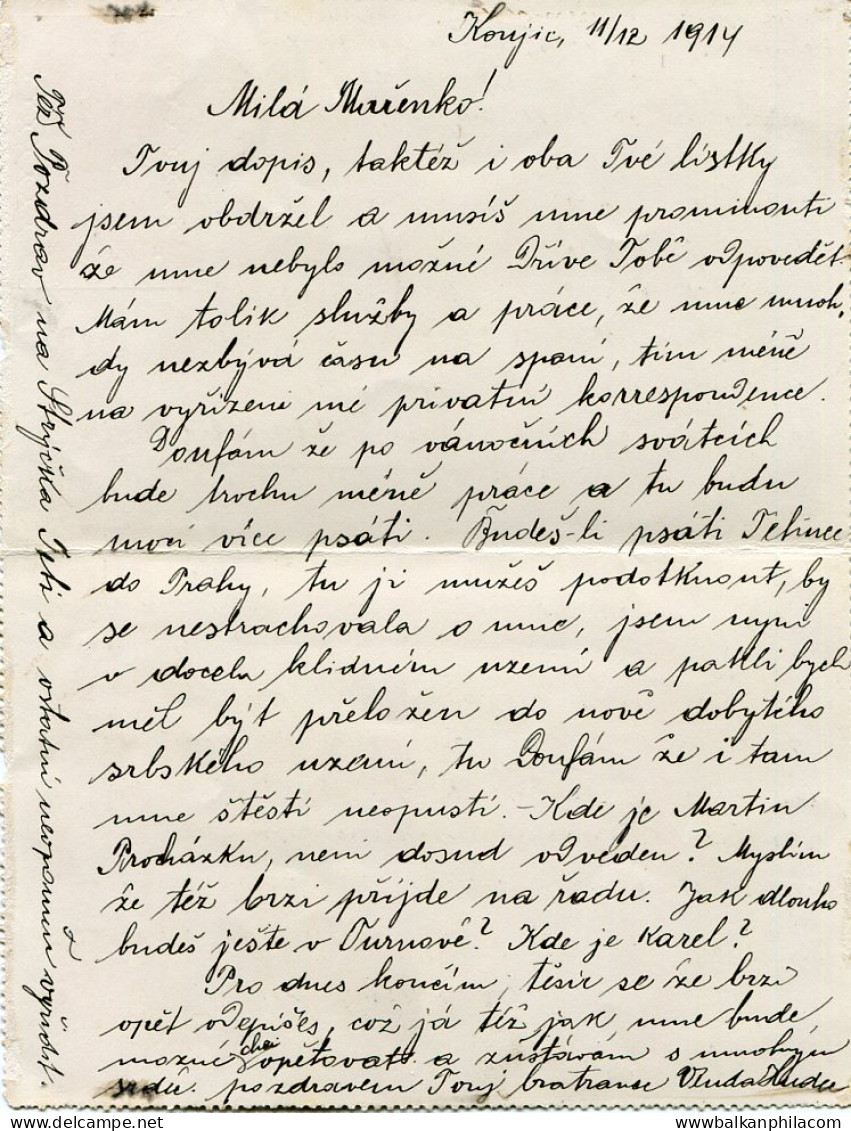 Konjic, 11/12 1914
Milá Mařenko!
Tvuj dopis, taktéž i oba Tvé lístky
jsem obdržel a musíš mne prominouti
že mne nebylo možné Dříve Tobě odpovedět.
Mám tolik služby a práce, že mne mnoh,
dy nezbývá času na spaní, tím méně
na vyřízení mé privatní korrespondence.
Doufám že po vánočních svátcích
bude trochu méně práce a tu budu
moci více psáti. Budeš-li psáti Tetince
do Prahy, tu ji mužeš podotknout, by
se nestrachovala o mne, jsem nyni
v docela klidném uzemí a paklibych
měl být přeložen do nově dobytého
srbského uzemí, tu Doufám že i tam
mne štěstí neopustí. - Kde je Martin
Procházku, neni dosud odveden? Myslím
že též brzi příjde na řadu. Jak dlouho
budeš ješte v Turnově? Kde je Karel?
Pro dnes končím, těsíc se že brzi
opět odepíšeš, což já též jak mne bude
možné opětovati a zůstávám s mnohým
srdč. pozdravem Tvuj bratranec
Též Pozdrav na Strýčka Teti a ostatní neopomen vyřídit.
www.balkanphila.com